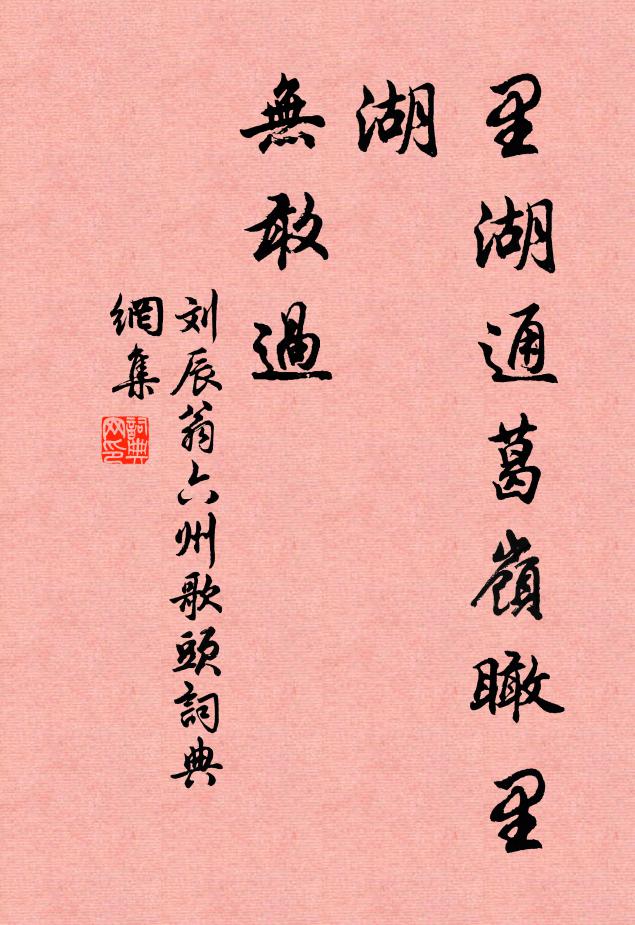 里湖通葛嶺瞰里
湖
無敢過
刘辰翁六州歌頭詞典
網集
詞典
网印